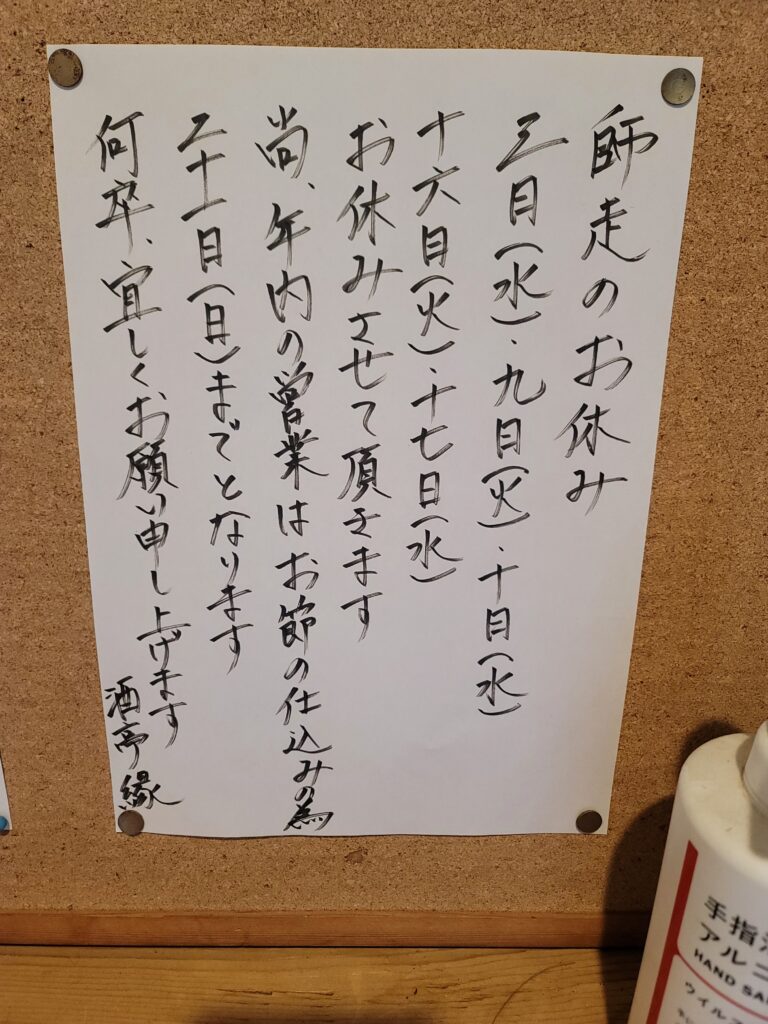 師走のお休み
三日(水)・九日(火)・十日(水)
十六日(火)・十七日(水)
お休みさせて頂きます
尚、年内の営業はお節の仕込みの為
二十一日(日)までとなります
何卒、宜しくお願い申し上げます
酒亭 縁
手指
アルコ
HAND SA
ウイル